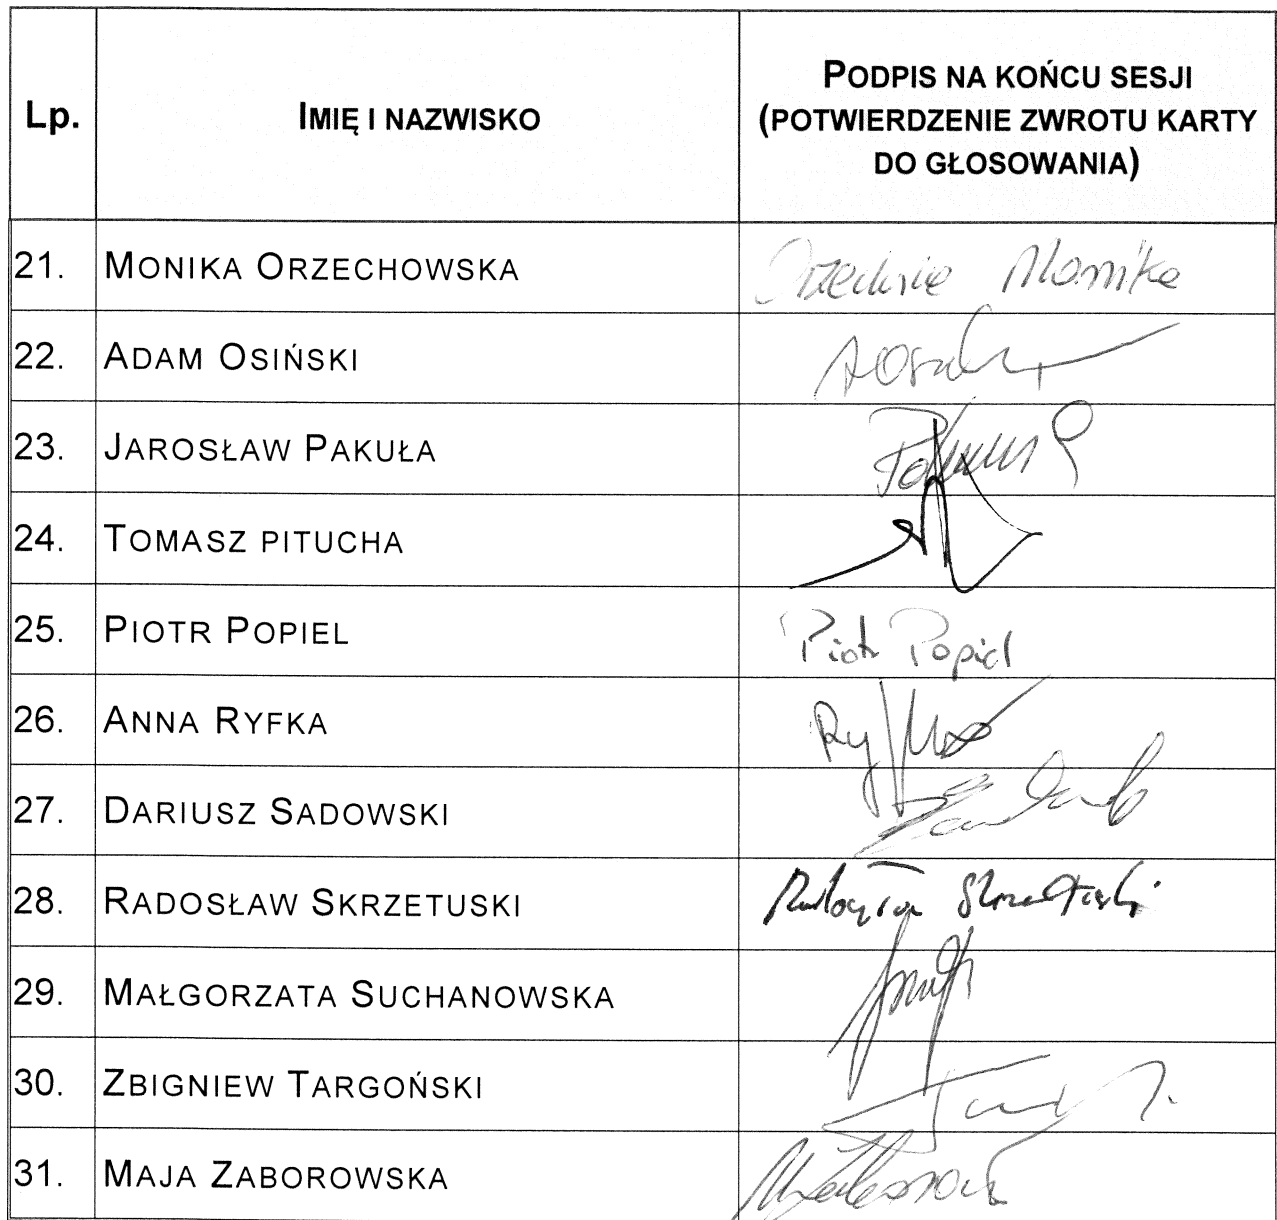 Lp.
IMIĘ I NAZWISKO
PODPIS NA KOŃCU SESJI
(POTWIERDZENIE ZWROTU KARTY
DO GŁOSOWANIA)
21. MONIKA ORZECHOWSKA Monika
22. ADAM OSIŃSKI
23. JAROSŁAW PAKUŁA
24. TOMASZ PITUCHA
25. PIOTR POPIEL Piotr Popiel
26. ANNA RYFKA
27. DARIUSZ SADOWSKI
28. RADOSŁAW SKRZETUSKI
29. MAŁGORZATA SUCHANOWSKA
30. ZBIGNIEW TARGOŃSKI
31. MAJA ZABOROWSKA